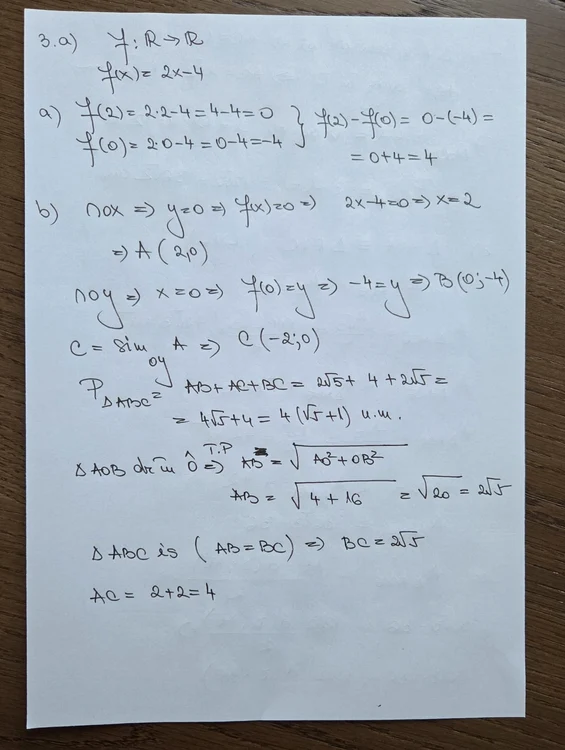 3.a) f: ℝ→ℝ
f(x)= 2x-4
a) f(2)= 2·2-4=4-4=0 } f(2)-f(0)= 0-(-4)=
f(0)= 2·0-4=0-4=-4
= 0+4=4
b) ∩ox ⇒ y=0 ⇒ f(x)=0 ⇒ 2x-4=0 ⇒ x=2
⇒ A (2,0)
∩oy ⇒ x=0 ⇒ f(0)=y ⇒ -4=y ⇒ B(0;-4)
C = sim_oy A ⇒ C(-2;0)
P_ΔABC = AB+AC+BC= 2√5+ 4 +2√5=
= 4√5+4= 4(√5+1) u.m.
ΔAOB dr în Ô ⇒ T.P AB = √(AO²+OB²)
AB = √(4+16) = √20 = 2√5
ΔABC is (AB=BC) ⇒ BC=2√5
AC = 2+2=4